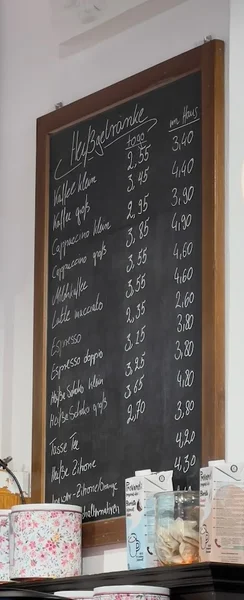 Heißgetränke
togo im Haus
Kaffee klein 2,55 3,40
Kaffee groß 3,45 4,40
Cappuccino klein 2,95 3,90
Cappuccino groß 3,85 4,90
Milchkaffee 3,55 4,60
Latte macciato 3,55 4,60
Espresso 2,35 2,60
Espresso doppio 3,15 3,80
Heiße Schoko klein 3,25 3,80
Heiße Schoko groß 3,65 4,80
Tasse Tee 2,70 3,80
Heiße Zitrone 4,20
Ingwer-Zitrone/Orange 4,30